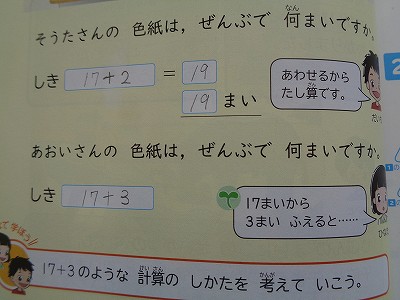 そうたさんの 色紙は，ぜんぶで 何まいですか。
しき 17+2 = 19
19 まい
あわせるから
たし算です。
あおいさんの 色紙は，ぜんぶで 何まいですか。
しき 17+3
17まいから
3まい ふえると……
17+3のような 計算の しかたを 考えて いこう。